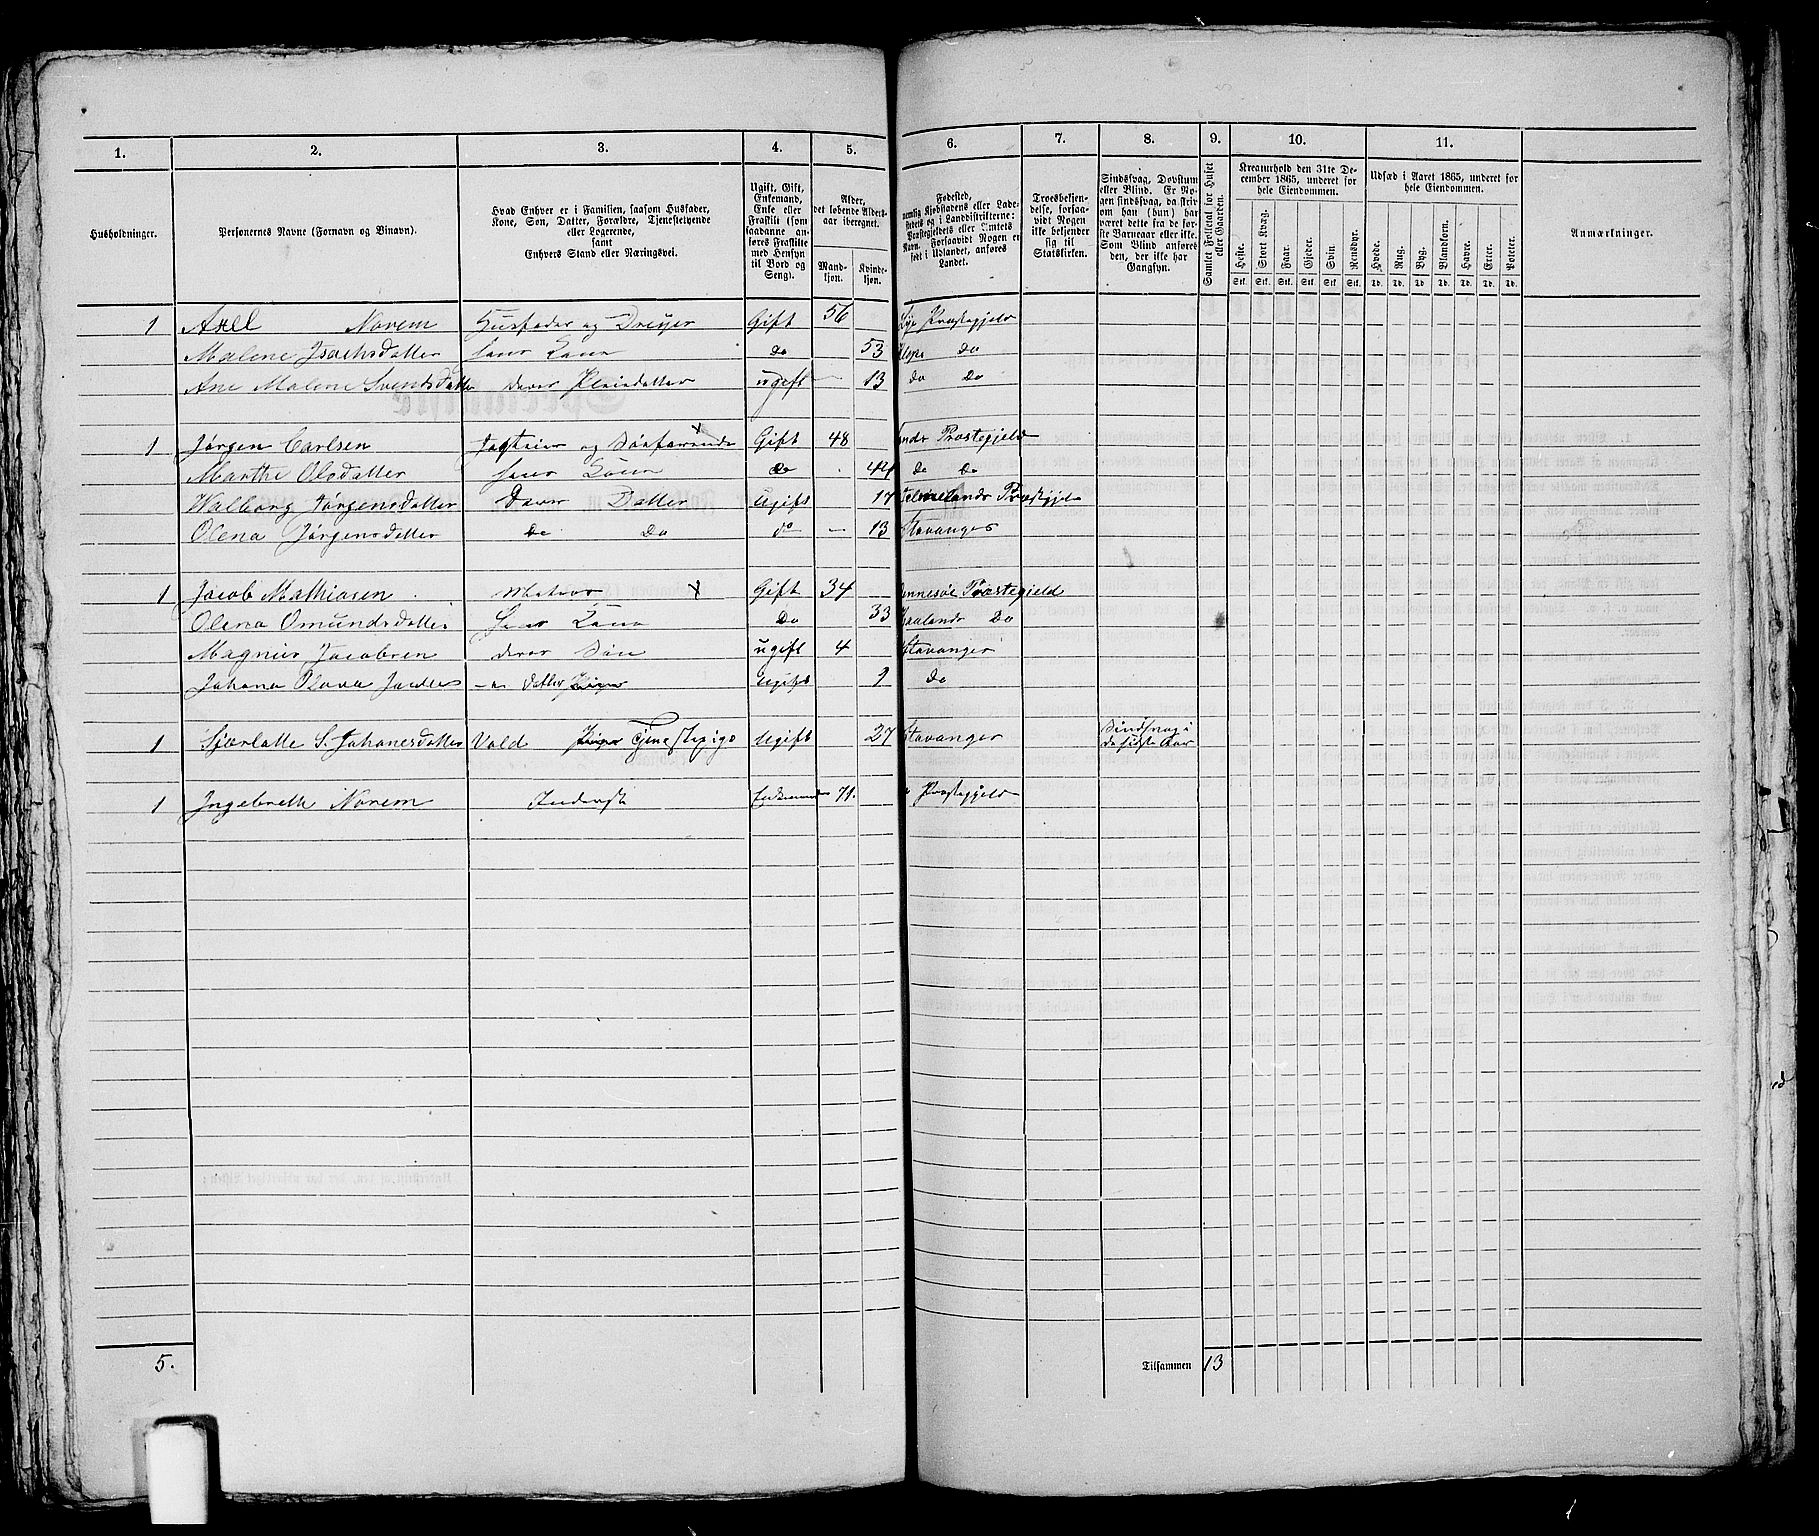 1. 2. 3. 4. 5. 6. 7. 8. 9. 10. 11.
Husholdninger.
Personernes Navne (Fornavn og Binavn).
Hvad Enhver er i Familien, saasom Husfader,
Kone, Søn, Datter, Forældre, Tjenestetyende
eller Logerende,
samt
Enhvers Stand eller Næringsvei.
Ugift, Gift,
Enkemand,
Enke eller
Fraskilt (som
saadanne an-
føres Fraskilte
med Hensyn
til Bord og
Seng).
Alder,
det løbende Alders-
aar iberegnet.
Mand-
kjøn.
Kvinde-
kjøn.
Fødested,
nemlig Kjøbstadens eller Lade-
stedets og i Landdistrikterne:
Præstegjeldets eller Amtets
Navn. Forsaavidt Nogen er
født i Udlandet, anføres
Landet.
Troesbekjen-
delse, forsaa-
vidt Nogen
ikke bekjender
sig til
Statskirken.
Sindssvag, Døvstum
eller Blind. Er No-
gen sindssvag, da skriv
om han (hun) har
været dette fra de før-
ste Barneaar eller ikke.
Som Blind anføres
den, der ikke har
Gangsyn.
Samlet Folketal for Huset
eller Gaarden.
Kreaturhold den 31te De-
cember 1865, underet for
hele Eiendommen.
Heste. Stort Kvæg. Faar. Gjeder. Svin. Rensdyr.
Stk. Stk. Stk. Stk. Stk. Stk.
Udsæd i Aaret 1865, underet for
hele Eiendommen.
Hvede. Rug. Byg. Blandkorn. Havre. Erter. Poteter.
Td. Td. Td. Td. Td. Td. Td.
Anmærkninger.
1 Axel Norem Husfader og Dreyer Gift 56 Lye Præstegjeld
Malene Isachsdatter hans Kone do 53 Klepp Do
Ane Malene Svendsdatter deres Pleiedatter ugift 13 do Do
1 Jørgen Carlsen Jagteier og Søefarende Gift 48 Præstegjeld
Marthe Olsdatter hans Kone do 44 De Do
Walborg Jørgensdatter Deres Datter Ugift 17 Præstgjel
Olena Jørgensdatter De Do do 13 Stavanger
1 Jacob Mathiasen Matros x Gift 34 Rennesøe Præstegjeld
Olena Omundsdatter Hans Kone Do 33 Haalands Do
Magnus Jacobsen deres Søn ugift 4 Stavanger
Johana Olava datter Ugift Do
1 S. Johanesdatter Vold Tjenestepige Ugift 27 Stavanger Sindsvag i de sidste Aar
1 Ingebreth Norem Enkemand 71. Præstegjeld
5. Tilsammen 13